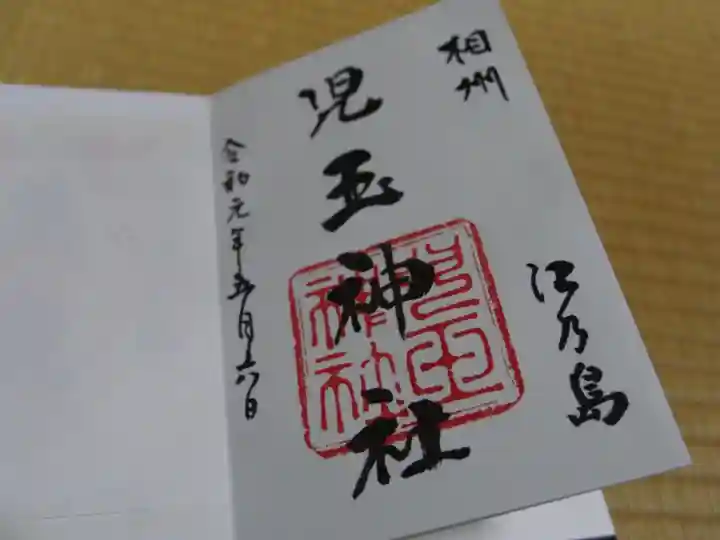 相州
江乃島
児玉神社
児玉
神社
令和元年五月六日